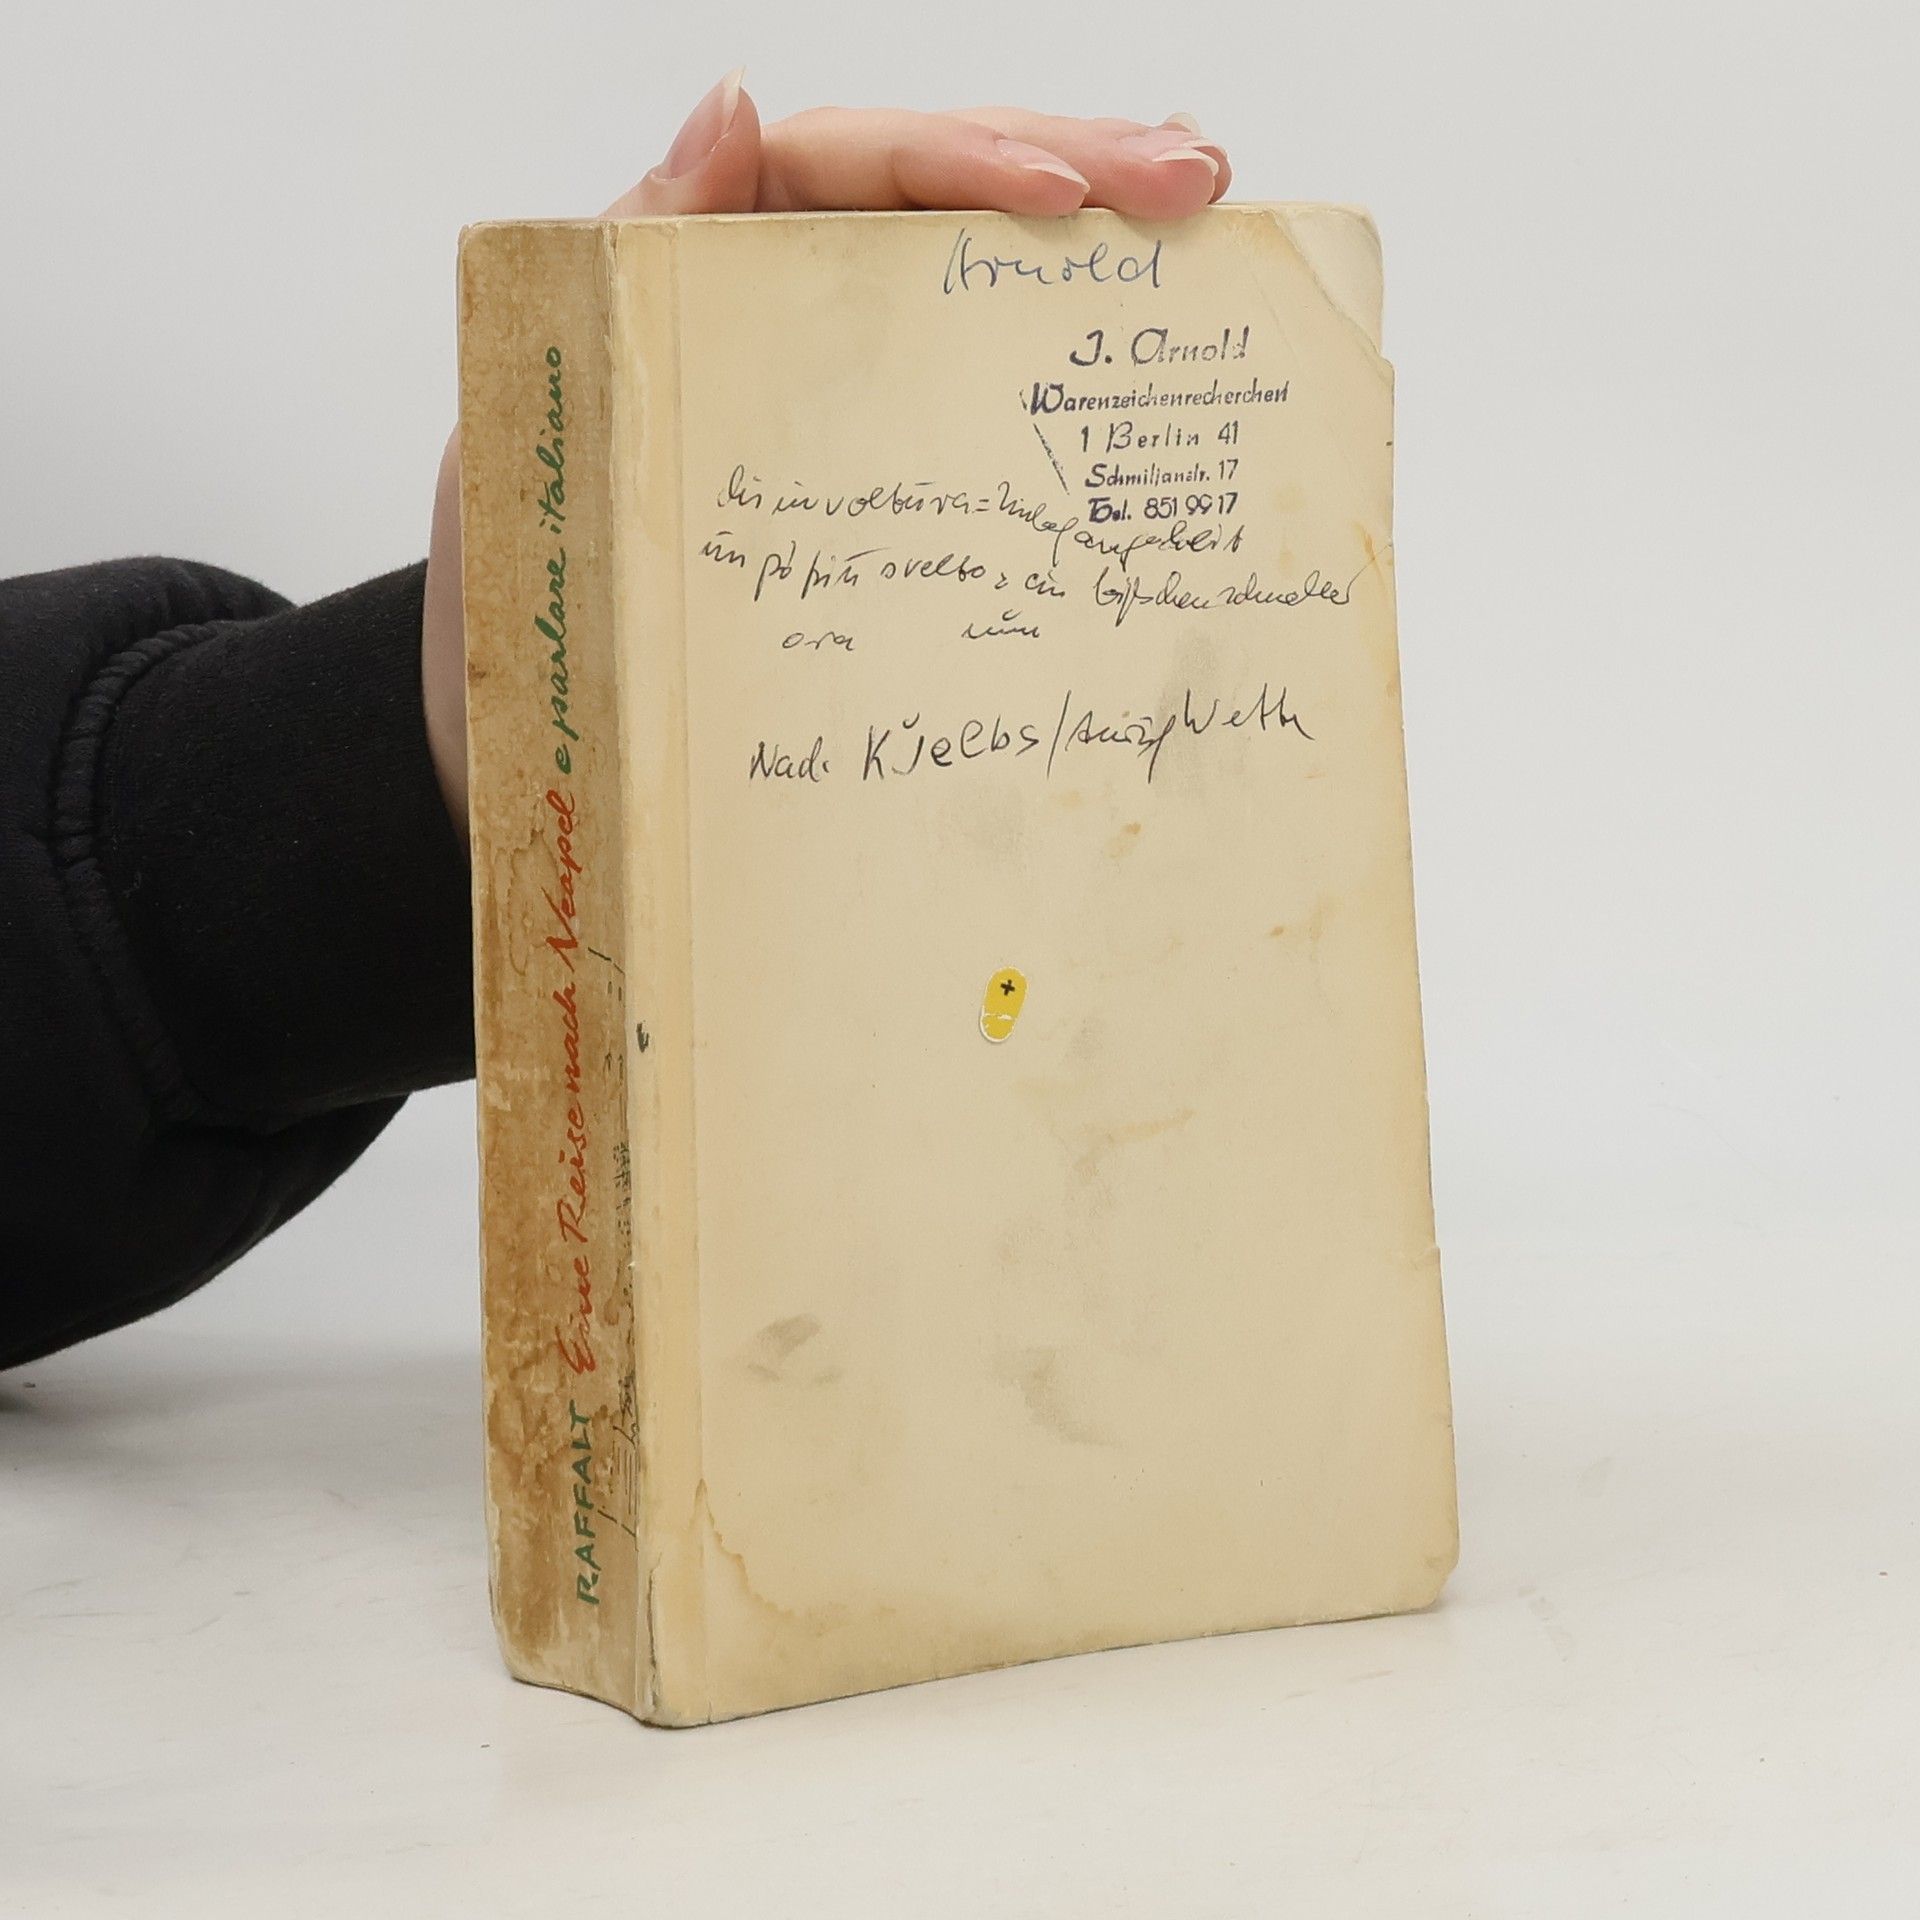 RAFFALT Eine Reise nach Neapel e parlare italiano
Arnold
J. Arnold
Warenzeichenrecherchen
1 Berlin 41
Schmiljanstr. 17
Tel. 851 99 17
disinvoltura =
un pò più svelto = ein bißchen schneller
ora nun
Nach